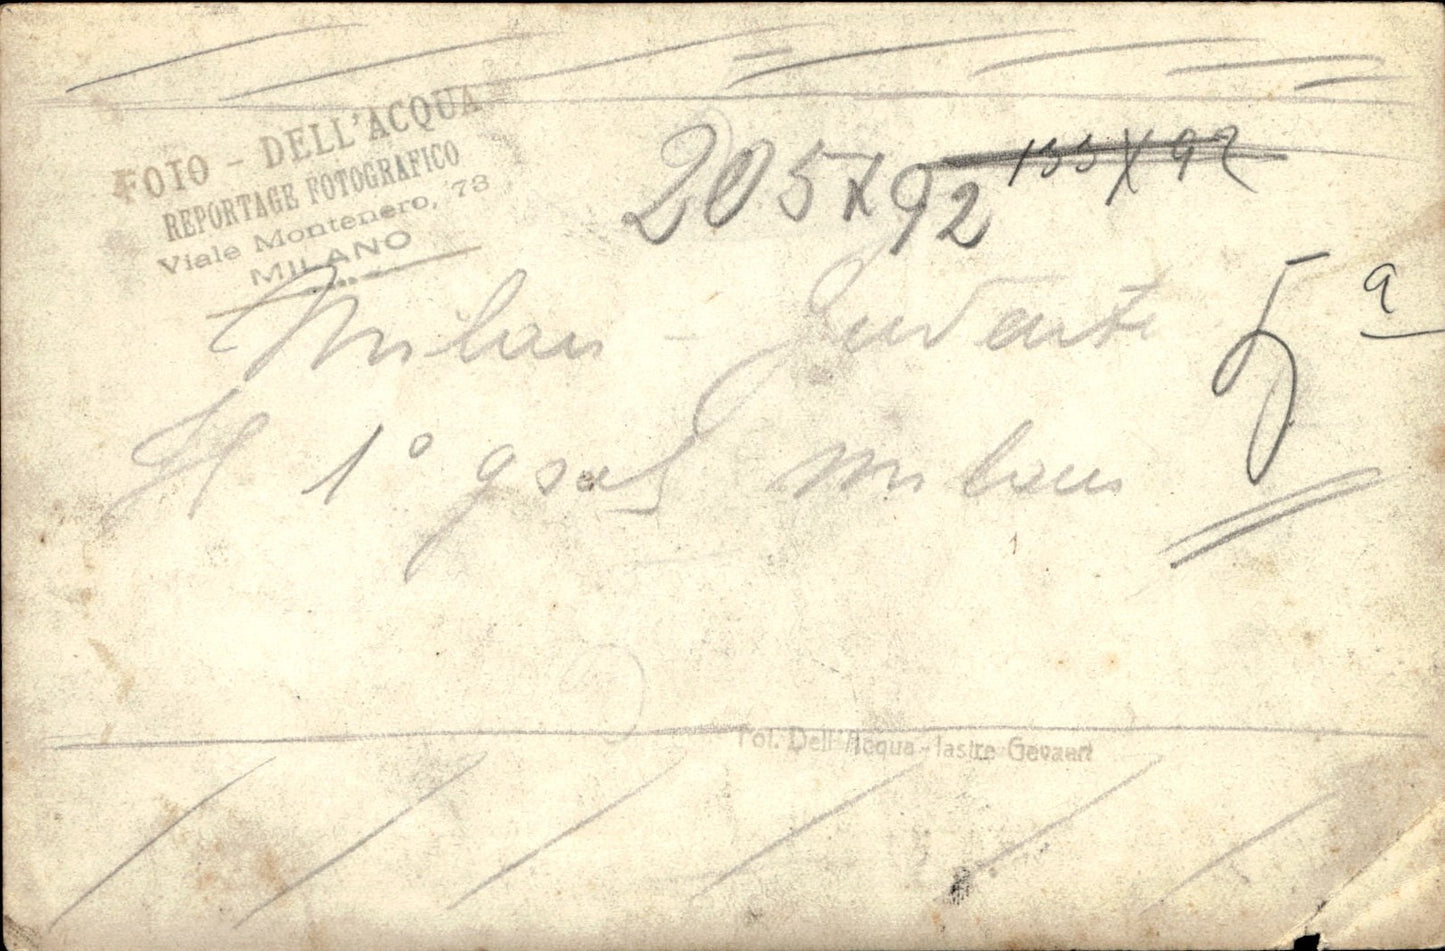 FOTO - DELL'ACQUA
REPORTAGE FOTOGRAFICO
Viale Montenero, 73
MILANO
205x92 155x92
Milan - Juventi
5a
Il 1° goal Milan
Fot. Dell'Acqua - lastre Gevaert